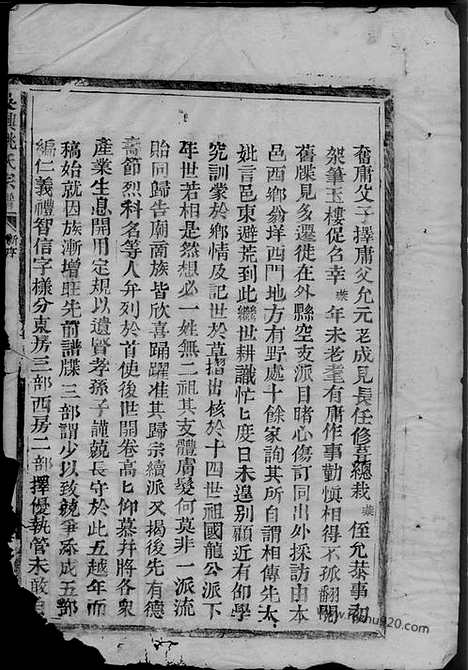 奮庸父子擇庸父允元老成見長任修葺總裁 英 侄允恭事初
架筆玉樓促名幸 英 年未老耄有庸作事勤慎相得不孤翻閱
舊牒見多遷徒在外縣空支派目睹心傷訂同出外採訪由本
邑西鄉翁垟西門地方有野處十餘家詢其所自謂相傳先太
妣言邑東避荒到此繼世耕識忙匕度日未遑别顧近有仰學
究訓蒙於鄉情及記世於草摺出核於十四世祖國龍公派下
年世若相是然想必一姓無二祖其支體膚髮何莫非一派流
貽同歸告廟南族皆欣喜踴躍准其歸宗續派又揭後先有德
壽節烈科名等人弁列於首使後世開卷高匕仰慕并將各衆
產業生息開用定規以遺賢孝孫子謹競長守於此五越年而
稿始就因族漸增旺先前譜牒三部謂少以致競爭添成五部
編仁義禮智信字樣分東房三部西房二部擇優執管未敢
姚氏宗譜
新序
www.jiapu920.com